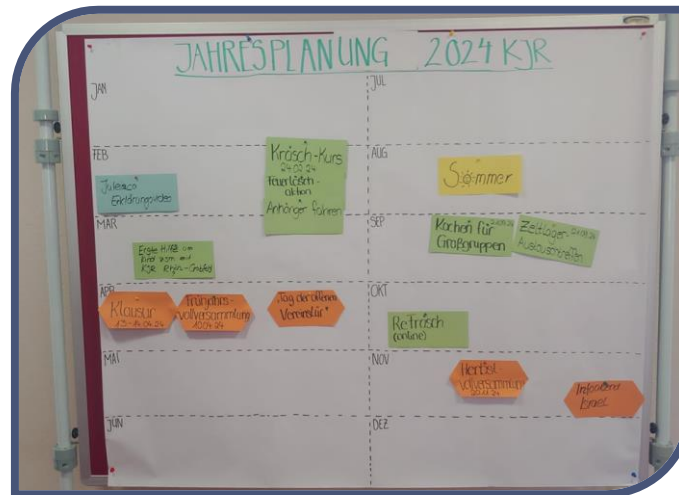 JAHRESPLANUNG 2024 KJR
JAN
FEB
Juleica
Erklärungsvideo
Kräsch-Kurs
24.02.24
Feuerlösch-
aktion
Anhänger fahren
MAR
Erste Hilfe
mit
KJR Rhön-Grabfeld
APR
Klausur
13.-14.04.24
Frühjahrs-
vollversammlung
10.04.24
"Tag der offenen
Vereinstür"
MAI
JUN
JUL
AUG
Sommer
SEP
Kochen für
Großgruppen
Zeltlager-
Austauschtreffen
OKT
Refräsch
(online)
NOV
Herbst-
vollversammlung
20.11.24
Infoabend
Israel
DEZ